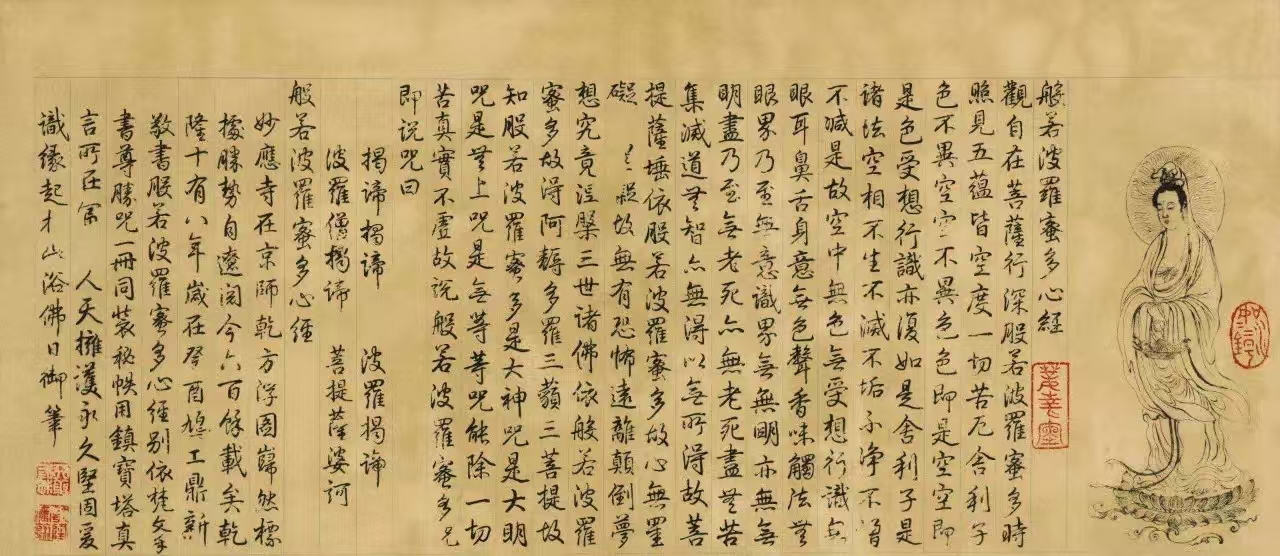 般若波羅蜜多心經
觀自在菩薩行深般若波羅蜜多時
照見五蘊皆空度一切苦厄舍利子
色不異空空不異色色即是空空即
是色受想行識亦復如是舍利子是
諸法空相不生不滅不垢不淨不增
不減是故空中無色無受想行識無
眼耳鼻舌身意無色聲香味觸法無
眼界乃至無意識界無無明亦無無
明盡乃至無老死亦無老死盡無苦
集滅道無智亦無得以無所得故菩
提薩埵依般若波羅蜜多故心無罣
礙 礙故無有恐怖遠離顛倒夢
想究竟涅槃三世諸佛依般若波羅
蜜多故得阿耨多羅三藐三菩提故
知般若波羅蜜多是大神咒是大明
咒是無上咒是無等等咒能除一切
苦真實不虛故說般若波羅蜜多咒
即說咒曰
揭諦揭諦 波羅揭諦
波羅僧揭諦 菩提薩婆訶
般若波羅蜜多心經
妙應寺在京師乾方浮圖巋然標
據勝勢自遼閱今六百餘載矣乾
隆十有八年歲在癸酉鳩工鼎新
敬書般若波羅蜜多心經別依梵文手
書尊勝咒一冊同裝秘帙用鎮寶塔真
言所在 人天擁護永久堅固爰
識緣起 此浴佛日御筆